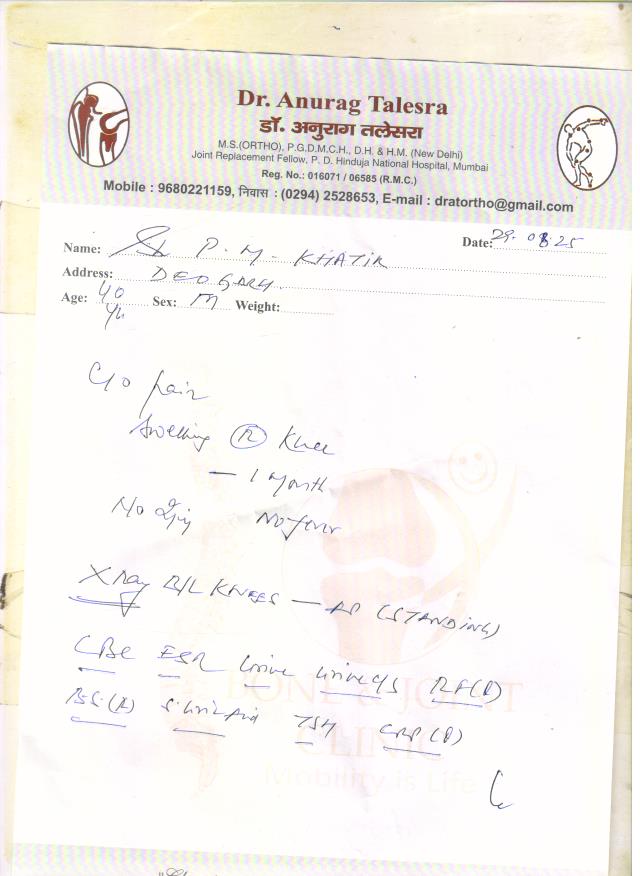 Dr. Anurag Talesra
डॉ. अनुराग तलेसरा
M.S.(ORTHO), P.G.D.M.C.H., D.H. & H.M. (New Delhi)
Joint Replacement Fellow, P. D. Hinduja National Hospital, Mumbai
Reg. No.: 016071 / 06585 (R.M.C.)
Mobile : 9680221159, निवास : (0294) 2528653, E-mail : dratortho@gmail.com
Date: 29.08.25
Name: P. M. KHATIK
Address: DEOGARH
Age: 40 Sex: M Weight:
Yr
C/o pain
Swelling (R) Knee
— 1 Month
No Inj No fever
X Ray B/L KNEES — AP (STANDING)
CBC ESR Urine Urine c/s RF(R)
BS(R) S. Uric Acid TSH CRP(R)
BONE & JOINT
CLINIC
Mobility is Life